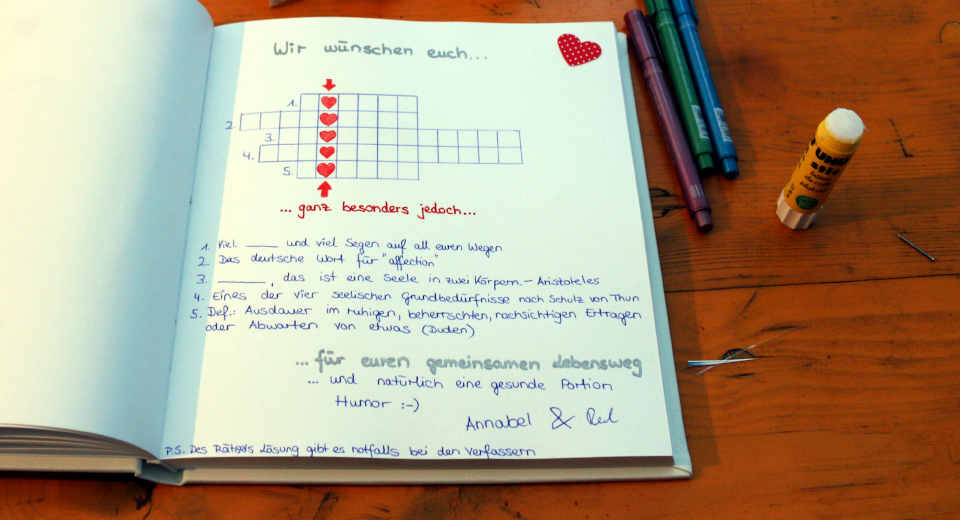 Wir wünschen euch...
1.
2.
3.
4.
5.
... ganz besonders jedoch...
1. Viel ____ und viel Segen auf all euren Wegen
2. Das deutsche Wort für "affection"
3. ____, das ist eine Seele in zwei Körpern. - Aristoteles
4. Eines der vier seelischen Grundbedürfnisse nach Schulz von Thun
5. Def.: Ausdauer im ruhigen, beherrschten, nachsichtigen Ertragen
oder Abwarten von etwas (Duden)
...für euren gemeinsamen Lebensweg
... und natürlich eine gesunde Portion
Humor :-)
Annabel &
P.S. Des Rätsels Lösung gibt es notfalls bei den Verfassern
UHU